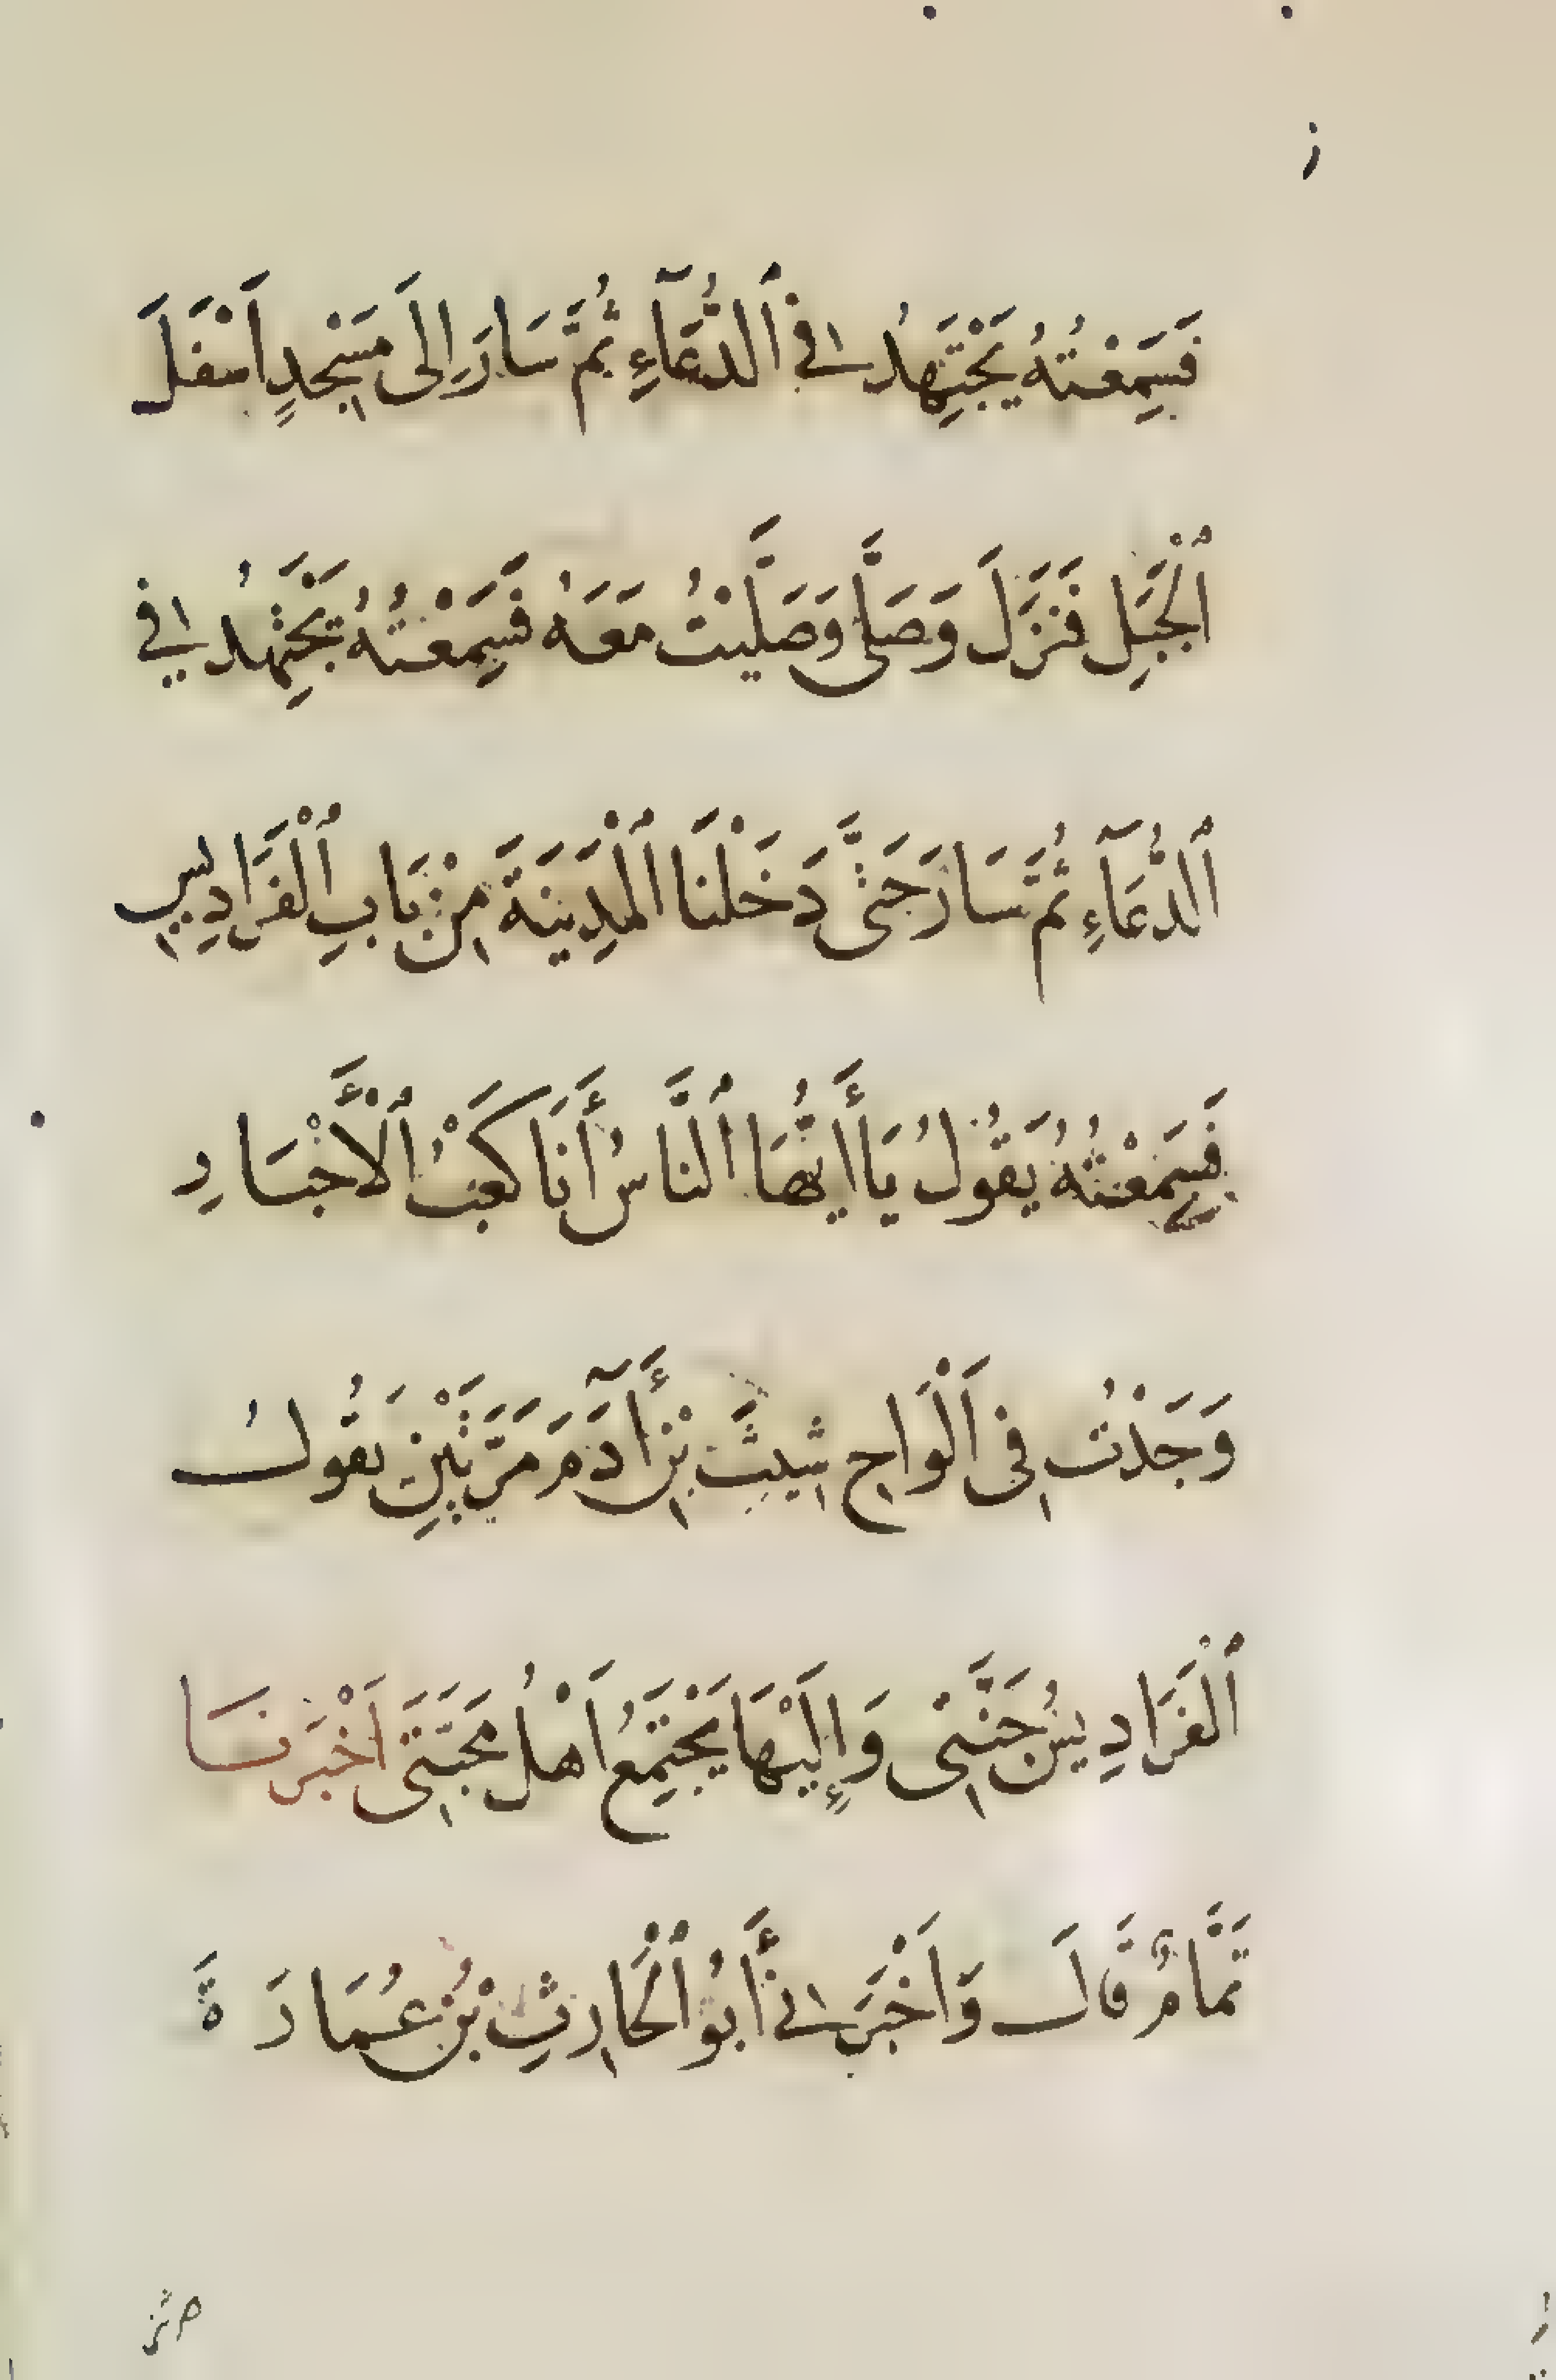 فَسَمِعْتُهُ يَجْتَهِدُ فِي ٱلدُّعَآءِ ثُمَّ سَارَ إِلَى مَسْجِدٍ اَسْفَلَ
ٱلْجَبَلِ فَنَزَلَ وَصَلَّى وَصَلَّيْتُ مَعَهُ فَسَمِعْتُهُ يَجْتَهِدُ فِي
ٱلدُّعَآءِ ثُمَّ سَارَ حَتَّى دَخَلْنَا ٱلْمَدِينَةَ مِنْ بَابِ ٱلْفَرَادِيسِ
فَسَمِعْتُهُ يَقُولُ يَا أَيُّهَا ٱلنَّاسُ أَنَا كَعْبُ ٱلْأَحْبَارِ
وَجَدْتُ فِى اَلْوَاحِ شِيثَ بْنِ أَآدَمَ مَرَّتَيْنِ يَقُولُ
ٱلْفَرَادِيسُ جَنَّتِى وَإِلَيْهَا يَجْتَمِعُ اَهْلُ مَحَبَّتِى اَخْبَرَنَا
تَمَّامٌ قَالَ وَاَخْبَرَنِي أَبُو ٱلْحَارِثِ بْنُ عُمَارَةَ